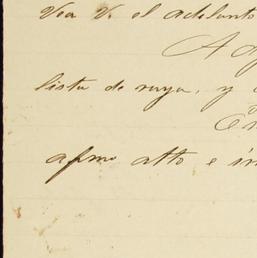 Vea V. el adelanto
A
lista de raya, y
En
afmo atto e in